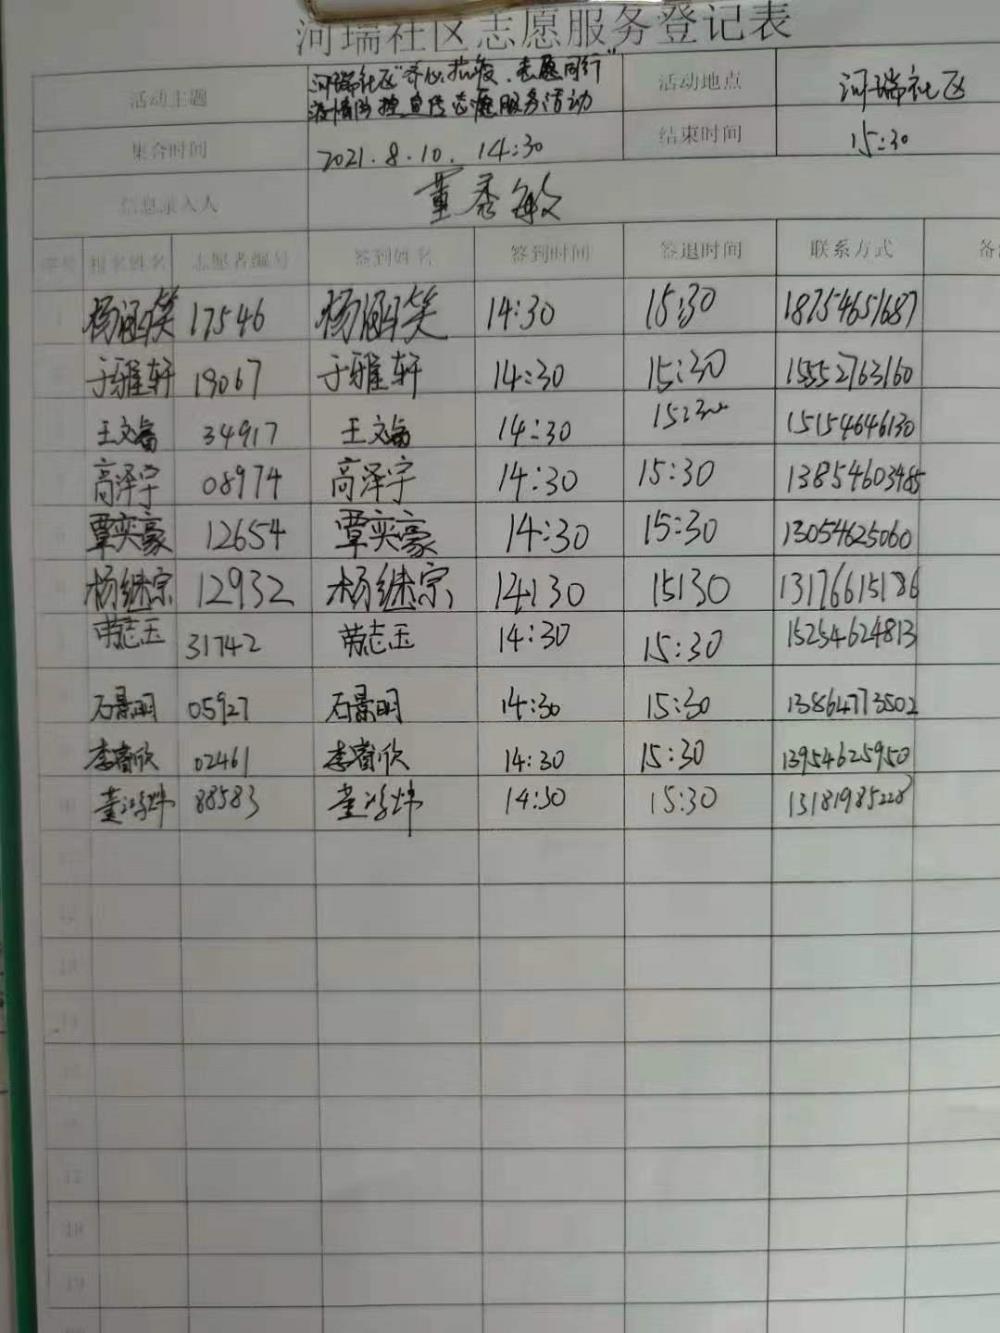 河瑞社区志愿服务登记表
活动主题 河瑞社区"齐心抗疫，志愿同行" 活动地点 河瑞社区
疫情防控宣传志愿服务活动
集合时间 2021.8.10. 14:30 结束时间 15:30
信息录入人 董秀敏
序号 报名姓名 志愿者编号 签到姓名 签到时间 签退时间 联系方式 备
1 杨涵笑 17546 杨涵笑 14:30 15:30 18754651687
于雅轩 19067 于雅轩 14:30 15:30 15552763160
王文 34917 王文 14:30 15:30 15154646130
高泽宇 08974 高泽宇 14:30 15:30 13854603485
覃奕豪 12654 覃奕豪 14:30 15:30 13054625060
杨继宗 12932 杨继宗 14:30 15:30 13176615186
志玉 31742 志玉 14:30 15:30 15254624813
石景明 05927 石景明 14:30 15:30 13864773502
李睿欣 02461 李睿欣 14:30 15:30 13954625950
10 董 88583 董 14:30 15:30 13181985228
13
14
18
19